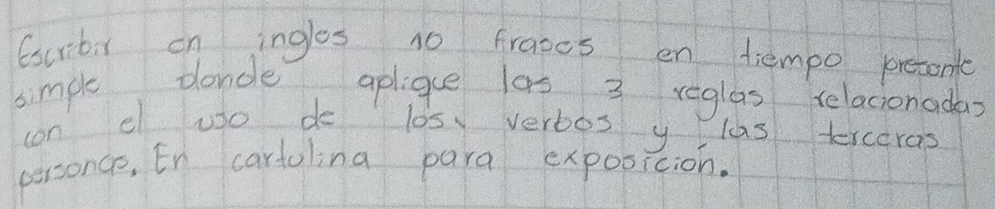 Escribir en ingles 10 frases en tiempo presente
simple donde aplique las 3 reglas relacionadas
con el uso de los verbos y las terceras
personas. En cartulina para exposición.